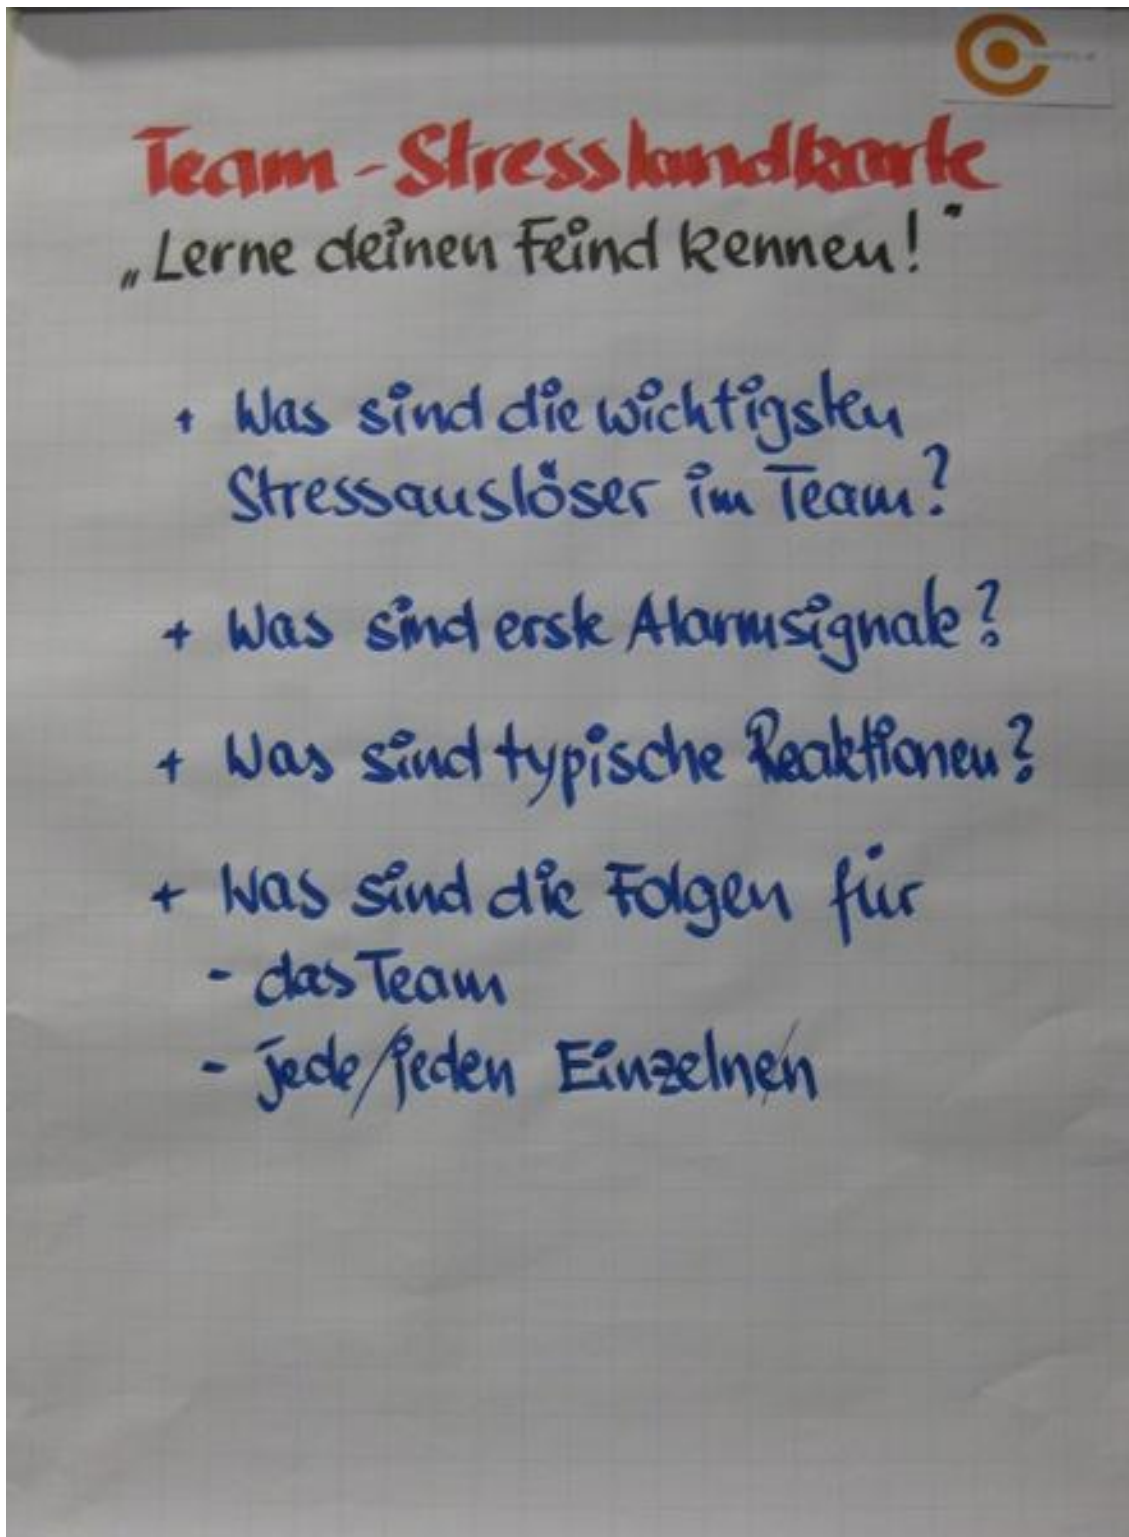 Team - Stresslandkarte
„Lerne deinen Feind kennen!“
+ Was sind die wichtigsten
Stressauslöser im Team?
+ Was sind erste Alarmsignale?
+ Was sind typische Reaktionen?
+ Was sind die Folgen für
- das Team
- jede/jeden Einzelne/n